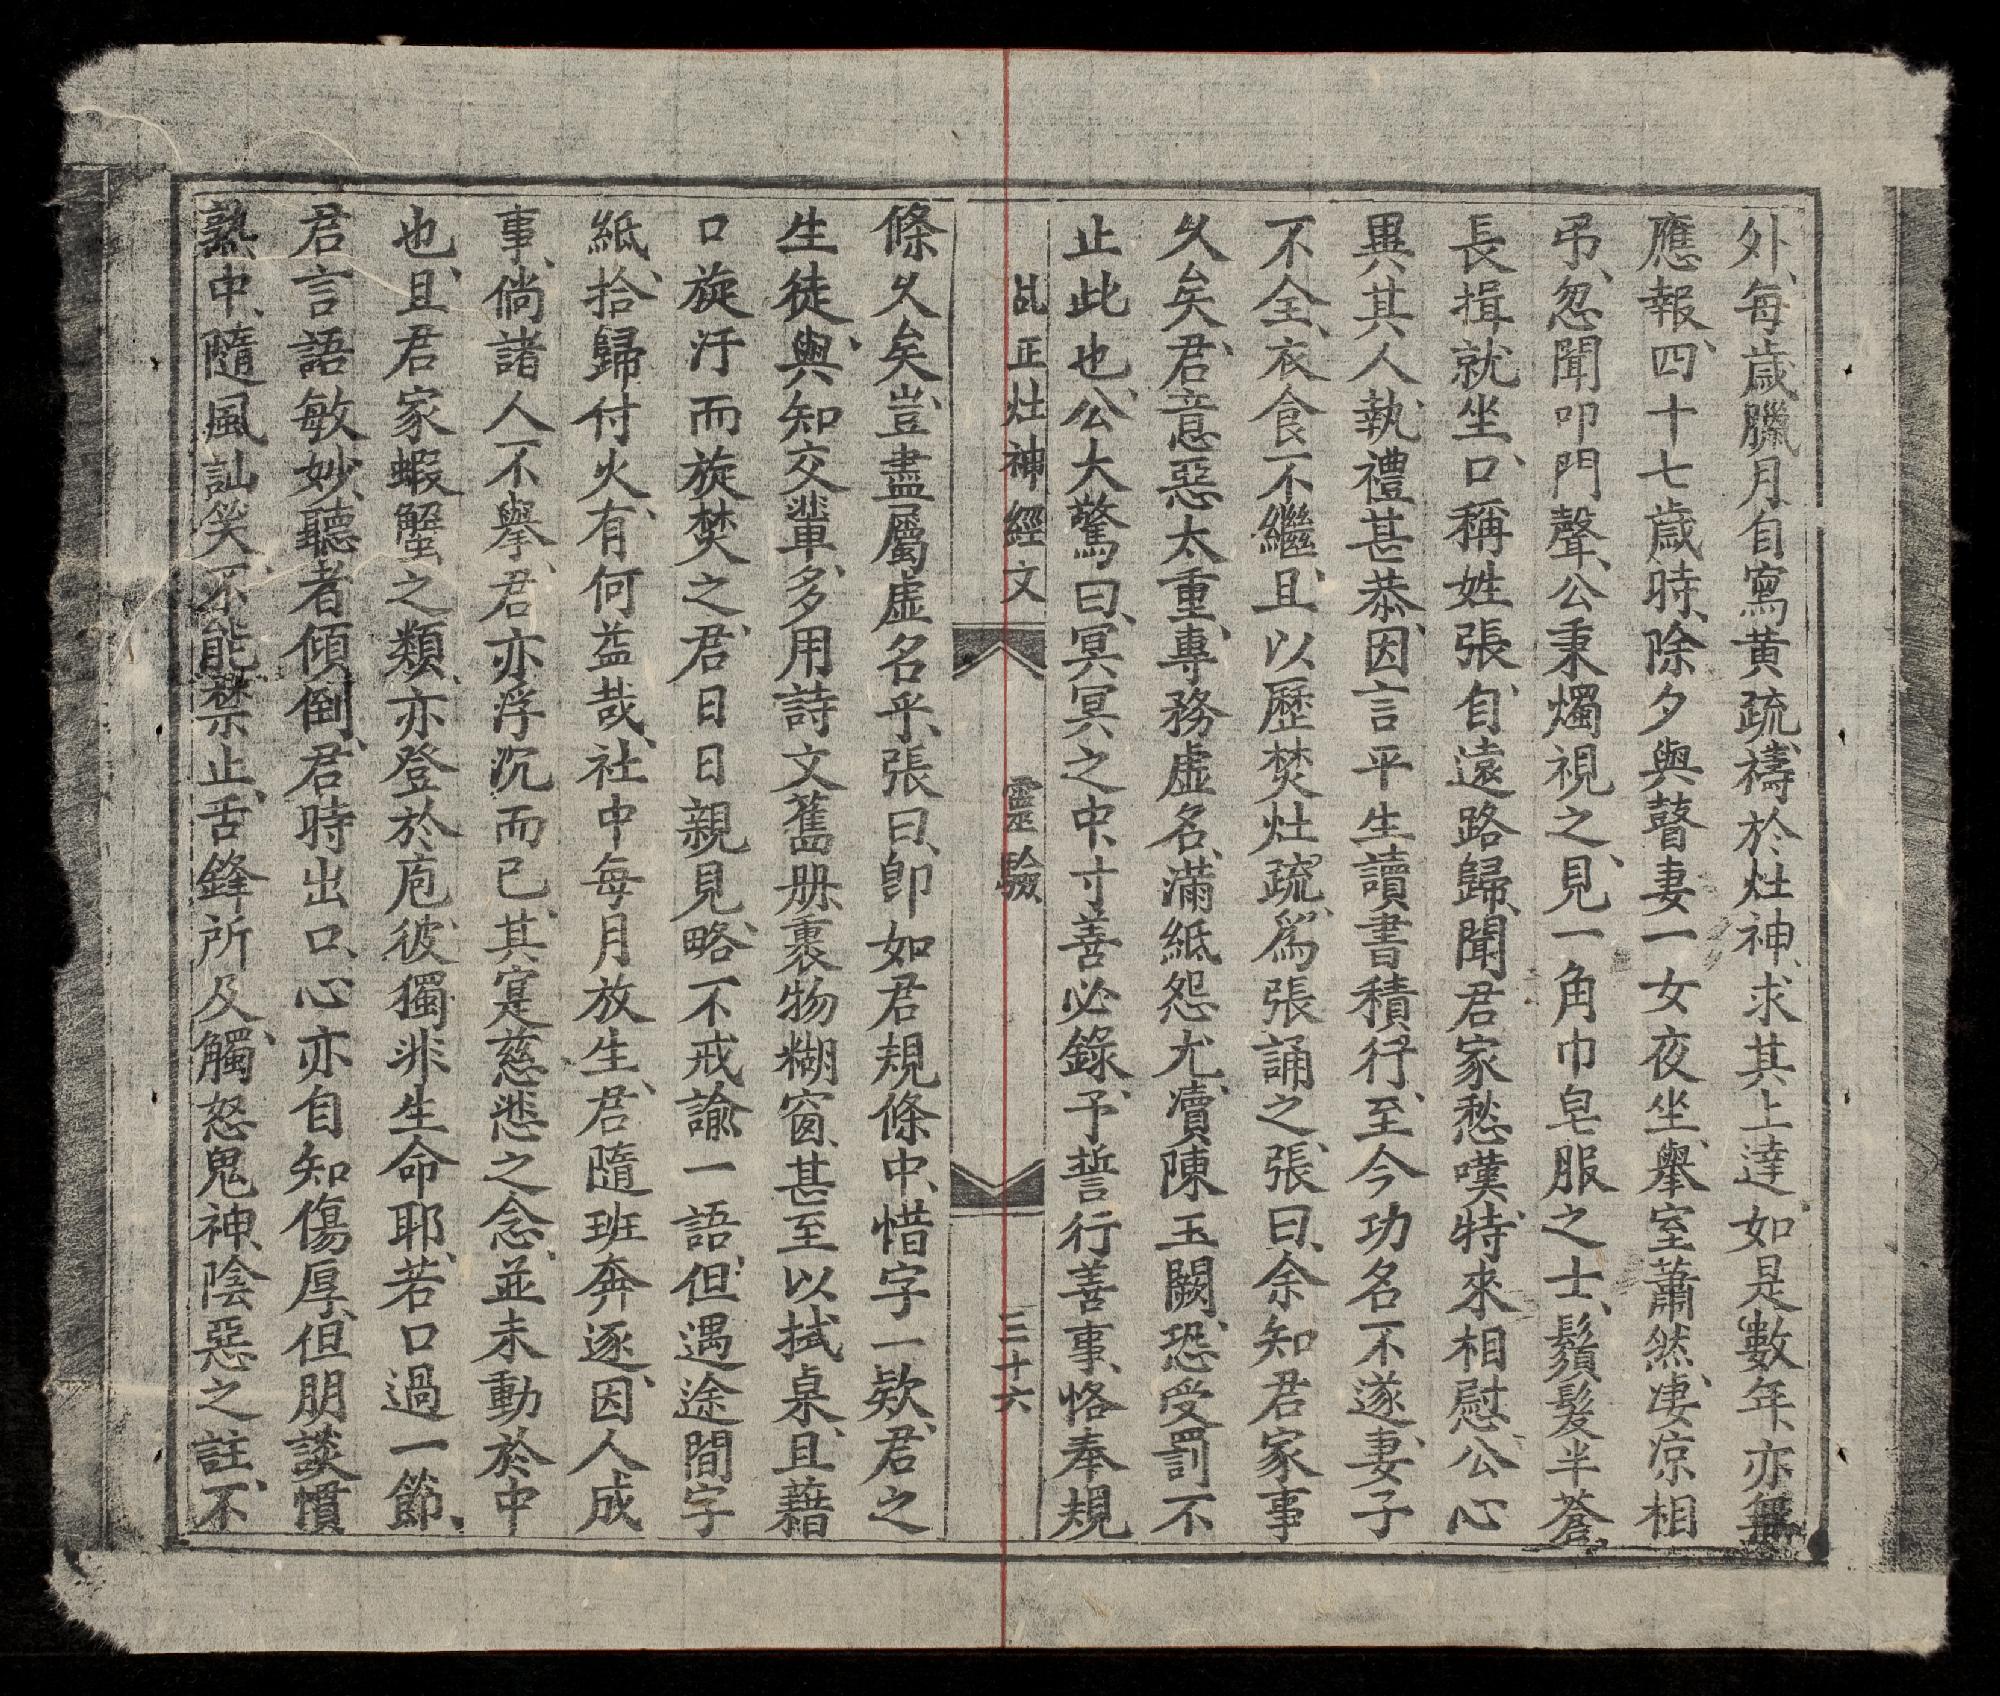 外、每歲臘月、自寫黄疏、禱於灶神、求其上達、如是數年、亦無
應報、四十七歲時、除夕與瞽妻一女夜坐、舉室蕭然、凄凉相
弔、忽聞叩門聲、公秉燭視之、見一角巾皂服之士、鬚髮半蒼、
長揖就坐、口稱姓張、自遠路歸、聞君家愁嘆、特來相慰、公心
異其人、執禮甚恭、因言平生讀書積行、至今功名不遂、妻子
不全、衣食不繼、且以歷焚灶疏、爲張誦之、張曰、余知君家事
久矣、君意惡太重、專務虛名、滿紙怨尤、瀆陳玉闕、恐受罰不
止此也、公大驚曰、冥冥之中、寸善必錄、予誓行善事、恪奉規
乩正灶神經文　靈驗　三十六
條久矣、豈盡屬虛名乎、張曰、卽如君規條中、惜字一欵、君之
生徒、與知交輩、多用詩文舊册、裹物糊窗、甚至以拭桌、且藉
口旋汙而旋焚之、君日日親見、略不戒諭一語、但遇途間字
紙、拾歸付火、有何益哉、社中每月放生、君隨班奔逐、因人成
事、倘諸人不舉、君亦浮沉而已、其寔慈悲之念、並未動於中
也、且君家蝦蟹之類、亦登於庖、彼獨非生命耶、若口過一節、
君言語敏妙、聽者傾倒、君時出口、心亦自知傷厚、但朋談慣
熟中、隨風訕笑、不能禁止、舌鋒所及、觸怒鬼神、陰惡之註、不